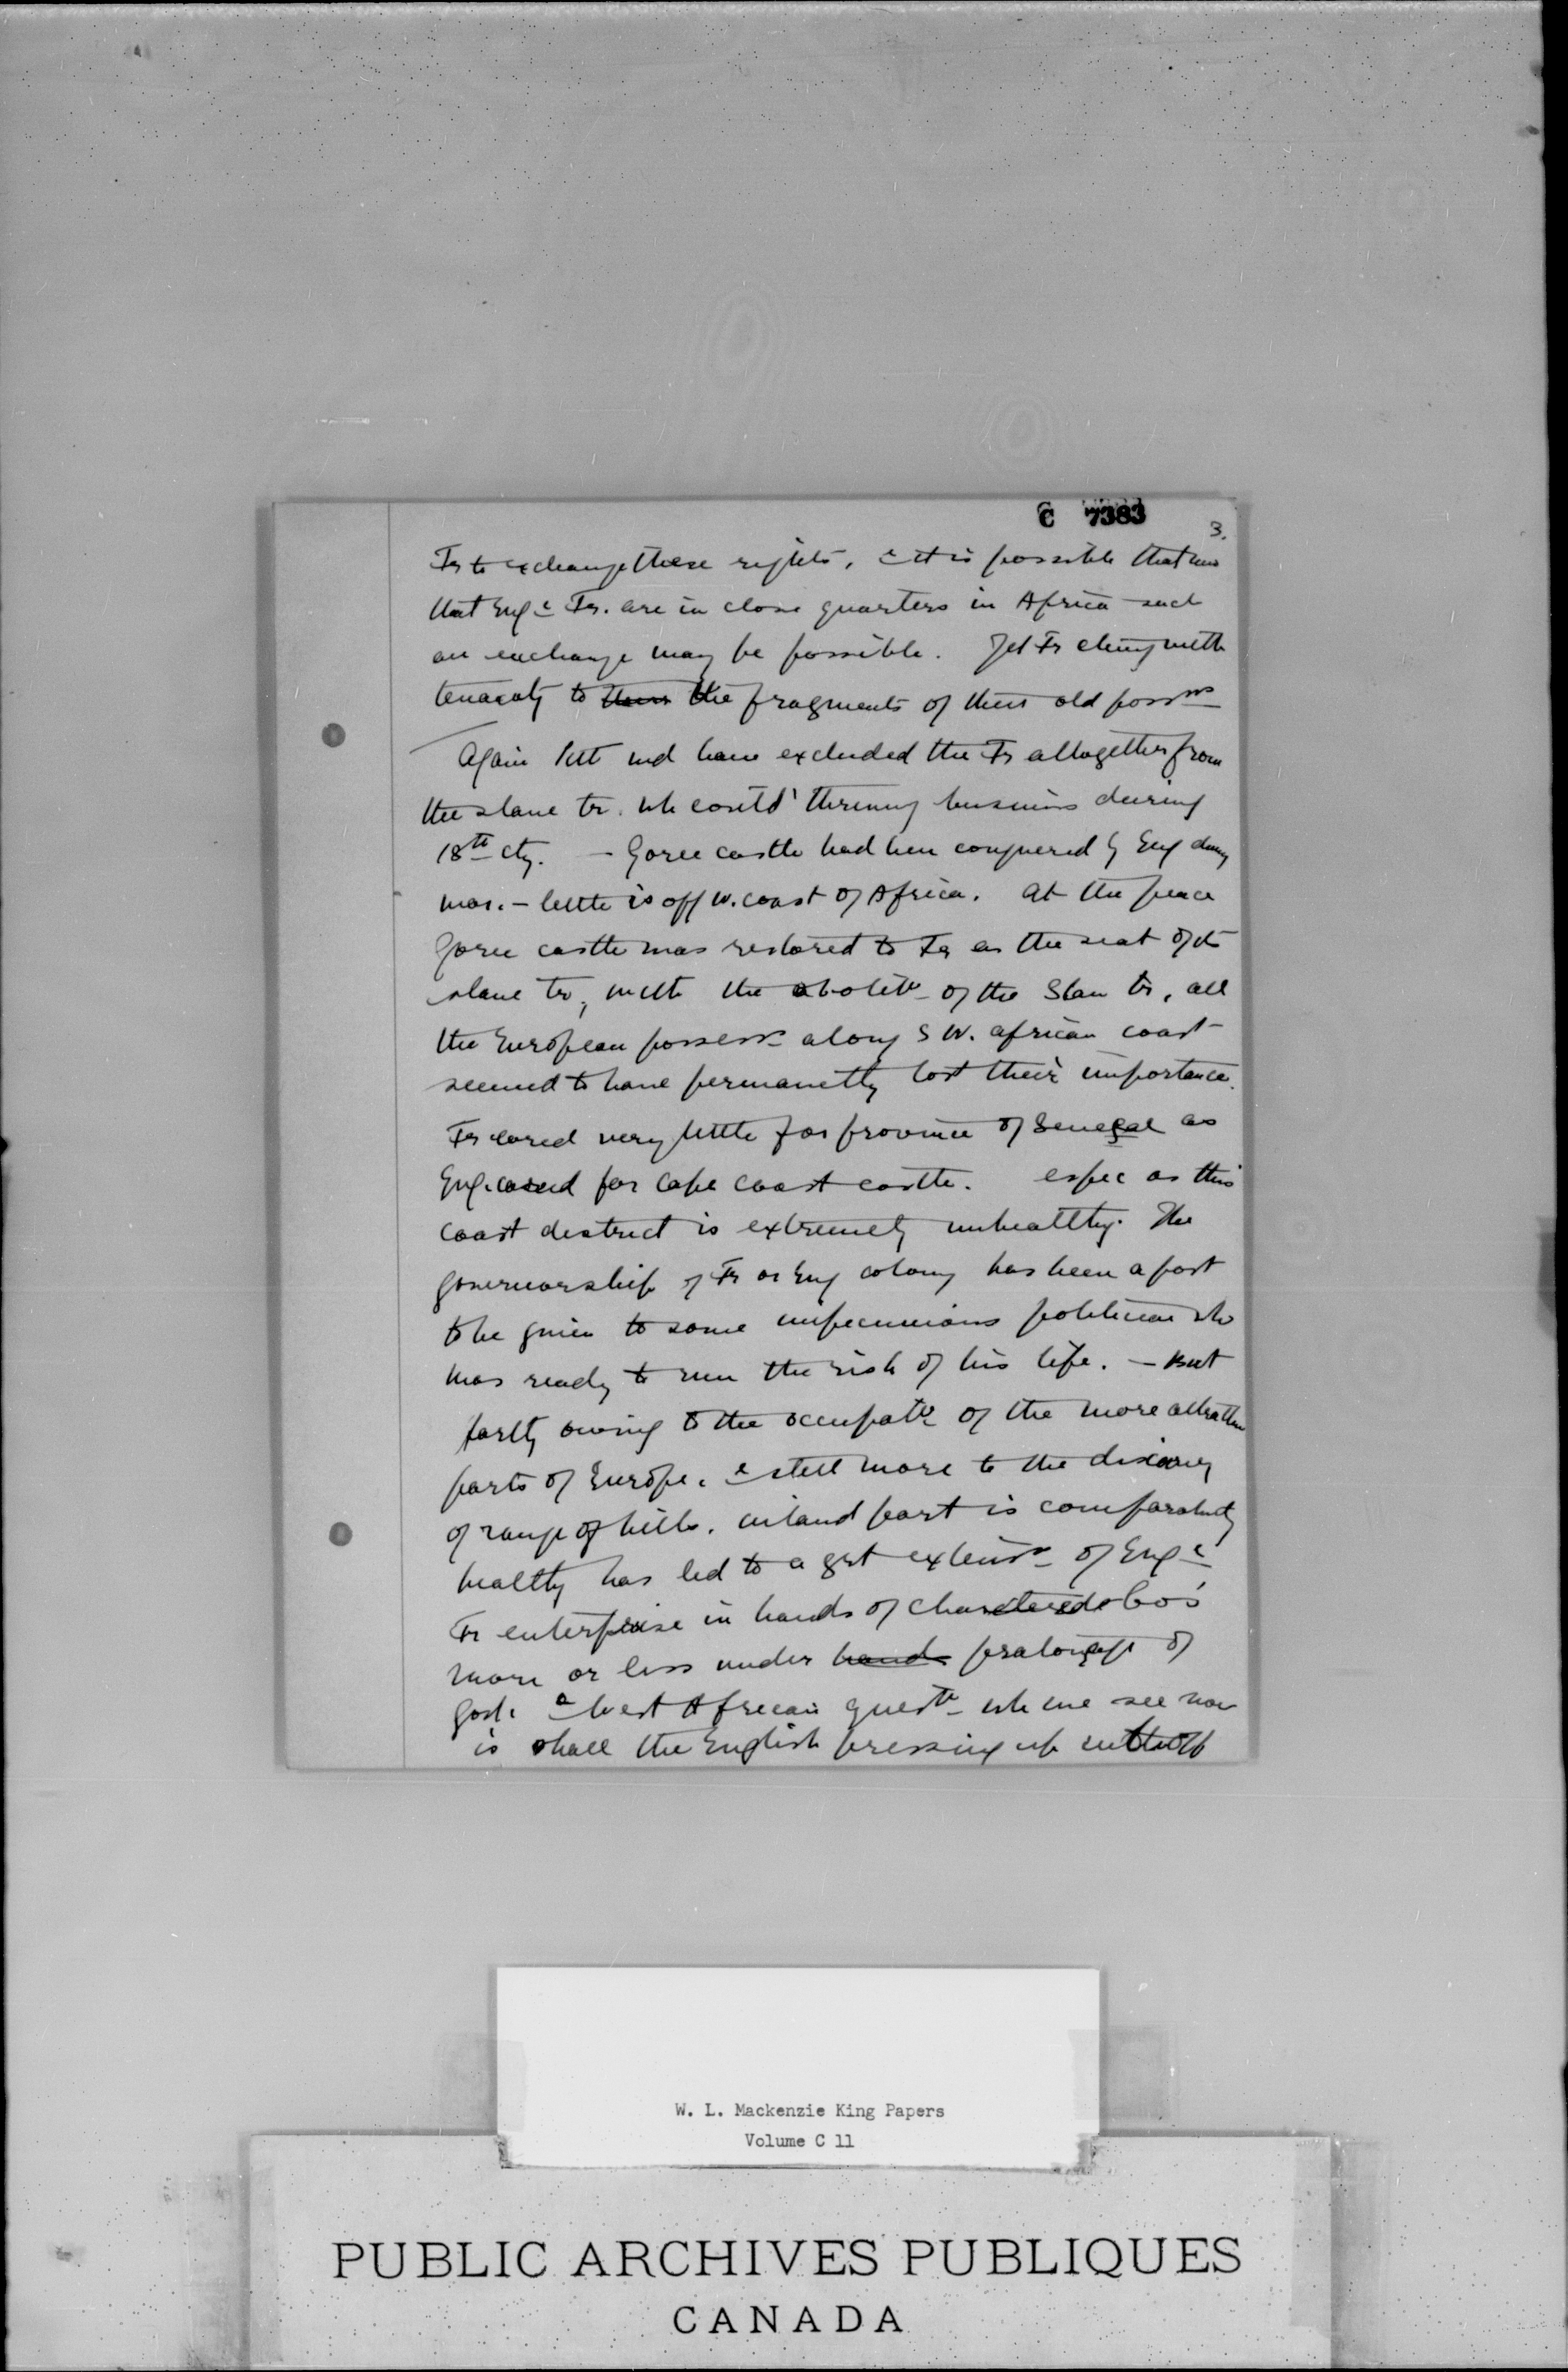 C 7383
3.
Fr to exchange these rights, & it is possible that now
that Eng & Fr. are in close quarters in Africa such
an exchange may be possible. Yet Fr cling with
tenacity to the fragments of their old possns
Again Pitt wd have excluded the Fr altogether from
the slave tr. wh constd thriving business during
18th cty. - Goree castle had been conquered by Eng during
war. - little is off W. coast of Africa. At the peace
Goree castle was restored to Fr as the seat of its
slave tr, with the abolitn of the Slave tr, all
the European possessns along S W. African coast
seemed to have permanetly lost their importance.
Fr cared very little for province of Senegal as
Eng. cared for Cape Coast castle. espec as this
coast district is extremely unhealthy. The
governorship of Fr or Eng colony has been a post
to be given to some impecunious politician who
was ready to run the risk of his life. - But
partly owing to the occupatn of the more attractive
parts of Europe. & still more to the discovery
of range of hills. inland part is comparatively
healthy has led to a grt extensn of Eng &
Fr enterprise in hands of chartered Co's
more or less under hands of
govt. & West African questn wh we see now
is shall the English pressing up
W. L. Mackenzie King Papers
Volume C 11
PUBLIC ARCHIVES PUBLIQUES
CANADA